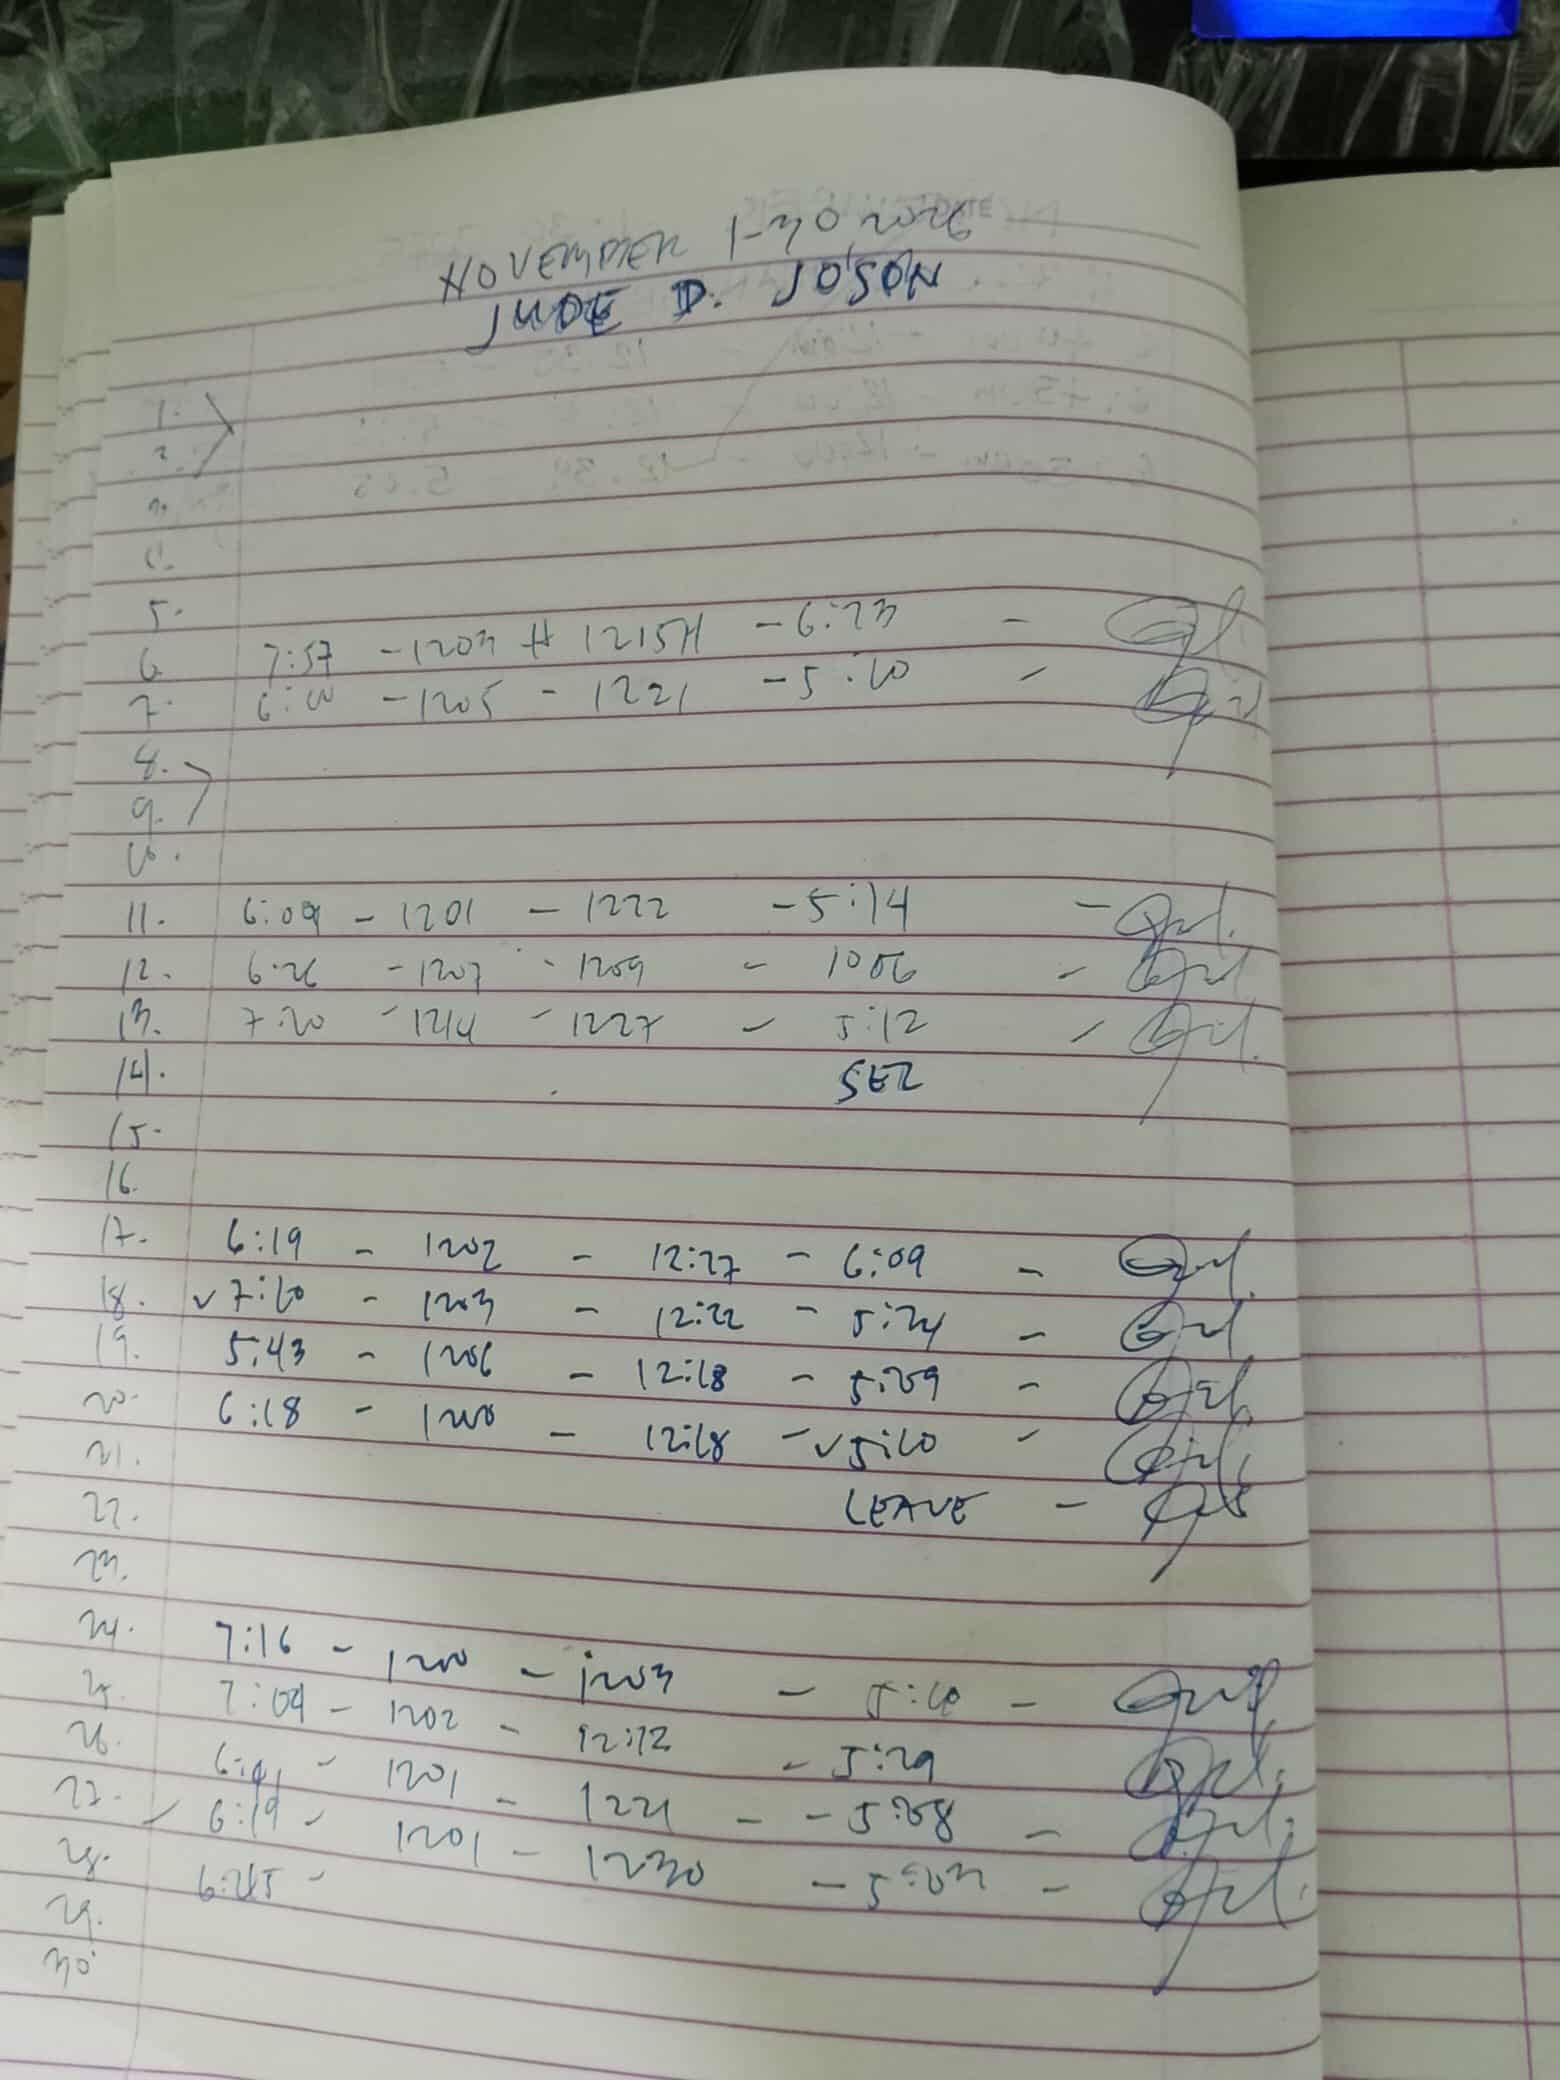 NOVEMBER 1-30, 2026
JUDE D. JOSON
1.
2
3.
5.
6 7:57 - 1203 # 1215H - 6:23 -
7. 6:10 - 1205 - 1221 - 5:10 -
8.
9.
10.
11. 6:09 - 1201 - 1222 - 5:14 -
12. 6:26 - 1207 - 1209 - 1006 -
13. 7:20 - 1214 - 1227 - 5:12 -
14. SEL
15.
16.
17. 6:19 - 1202 - 12:27 - 6:09 -
18. ✓ 7:10 - 1203 - 12:22 - 5:24 -
19. 5:43 - 1206 - 12:18 - 5:09 -
20. 6:18 - 1200 - 12:18 - ✓ 5:10 -
21.
22. LEAVE -
23.
24. 7:16 - 1200 - 1203 - 5:10 -
25. 7:09 - 1202 - 12:12 - 5:29
26. - 1201 - 1221 - - 5:08 -
27. - 6:19 - 1201 - 1230 - 5:03 -
28. 6:45 -
29.
30.